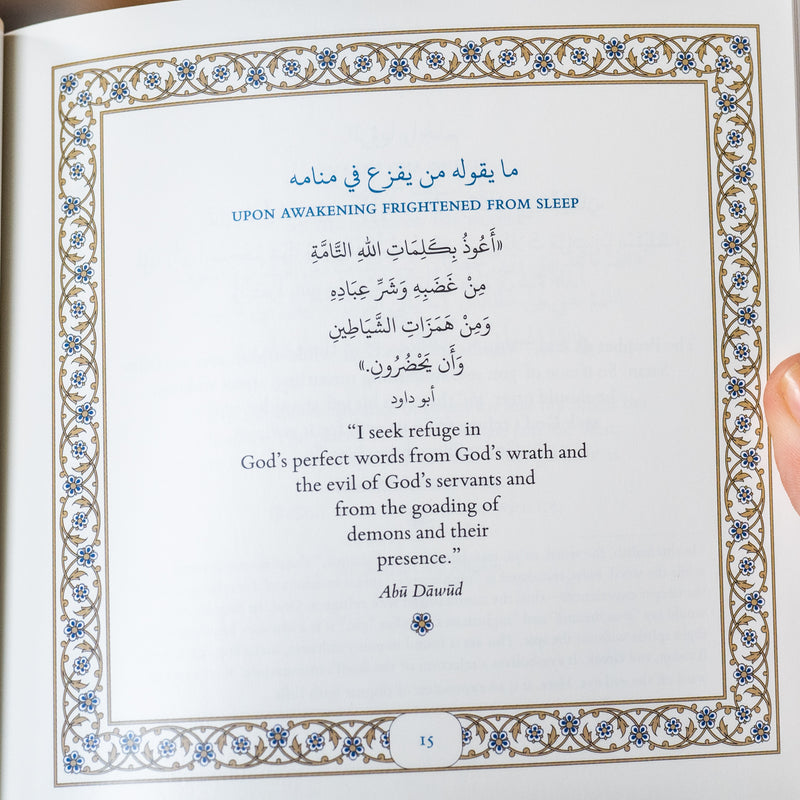 ما يقوله من يفزع في منامه
UPON AWAKENING FRIGHTENED FROM SLEEP
«أَعُوذُ بِكَلِمَاتِ اللهِ التَّامَّةِ
مِنْ غَضَبِهِ وَشَرِّ عِبَادِهِ
وَمِنْ هَمَزَاتِ الشَّيَاطِينِ
وَأَن يَحْضُرُونِ.»
أبو داود
“I seek refuge in
God’s perfect words from God’s wrath and
the evil of God’s servants and
from the goading of
demons and their
presence.”
Abū Dāwūd
15